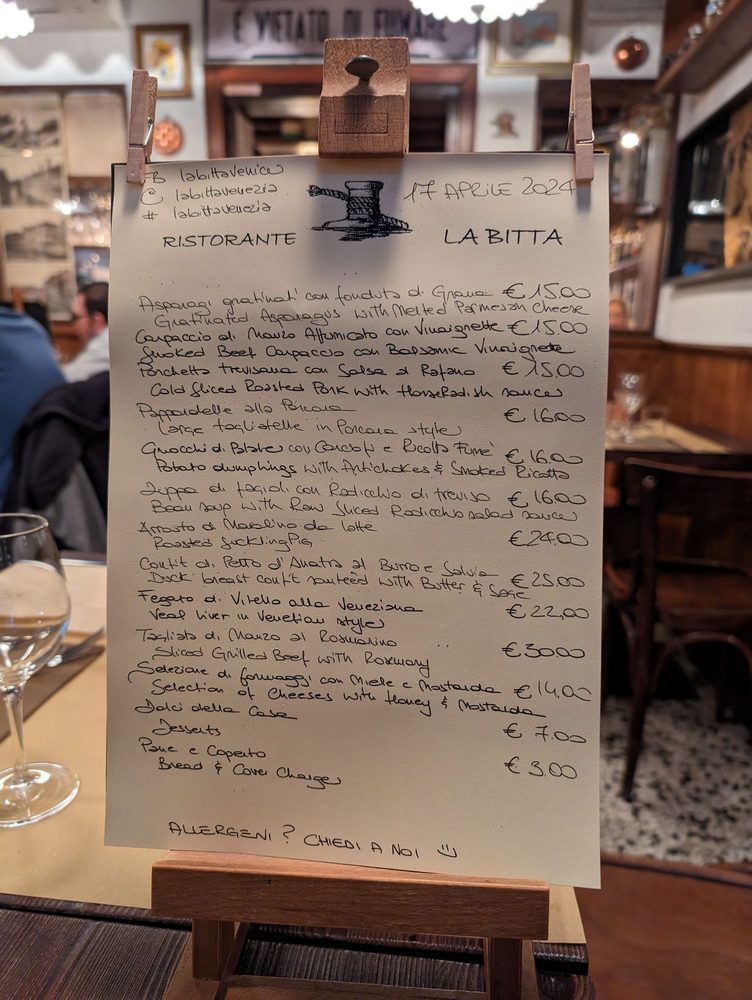 È VIETATO DI FUMARE
labittavenice
labittavenezia
# labittavenezia
17 APRILE 2024
RISTORANTE LA BITTA
Asparagi gratinati con fonduta di Grana € 15.00
Gratinated Asparagus with Melted Parmesan cheese
Carpaccio di Manzo Affumicato con Vinaigrette € 15.00
Smoked Beef Carpaccio con Balsamic Vinaigrete
Porchetta trevisana con Salsa al Rafano € 15.00
Cold Sliced Roasted Pork with HorseRadish sauce
Pappardelle alla € 16.00
Large tagliatelle in style
Gnocchi di Patate con Carciofi e Ricotta Fumè € 16.00
Potato dumplings with Artichokes & Smoked Ricotta
Zuppa di fagioli con Radicchio di treviso € 16.00
Bean soup with Raw Sliced Radicchio salad sauce
Arrosto di Maialino da latte € 24.00
Roasted Suckling Pig
Confit di Petto d'Anatra al Burro e Salvia € 25.00
Duck breast confit sauteèd with Butter & Sage
Fegato di Vitello alla Veneziana € 22,00
Veal liver in Venetian style
Tagliata di Manzo al Rosmarino € 30.00
Sliced Grilled Beef with Rosmary
Selezione di formaggi con Miele e Mostarda € 14.00
Selection of Cheeses with Honey & Mostarda
Dolci della Casa € 7.00
Desserts
Pane e Coperto € 3.00
Bread & Cover Charge
ALLERGENI? CHIEDI A NOI